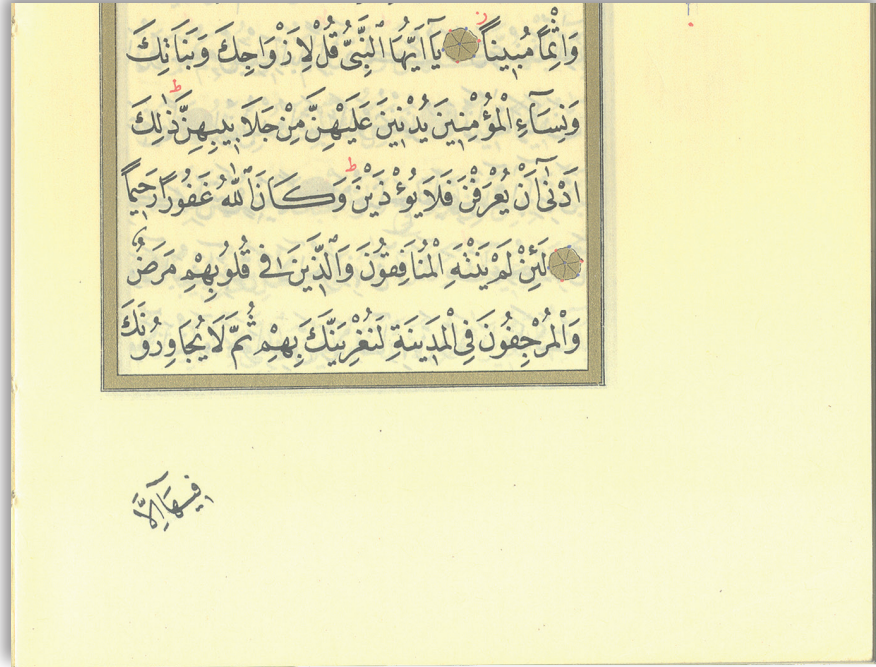 وَاِثْمًا مُبِينًا يَٓا اَيُّهَا النَّبِىُّ قُلْ لِاَزْوَاجِكَ وَبَنَاتِكَ
وَنِسَٓاءِ الْمُؤْمِنِينَ يُدْنِينَ عَلَيْهِنَّ مِنْ جَلَابِيبِهِنَّ ط ذٰلِكَ
اَدْنٰٓى اَنْ يُعْرَفْنَ فَلَا يُؤْذَيْنَ ط وَكَانَ اللّٰهُ غَفُورًا رَحِيمًا
لَئِنْ لَمْ يَنْتَهِ الْمُنَافِقُونَ وَالَّذِينَ فِى قُلُوبِهِمْ مَرَضٌ
وَالْمُرْجِفُونَ فِى الْمَدِينَةِ لَنُغْرِيَنَّكَ بِهِمْ ثُمَّ لَا يُجَاوِرُونَكَ
فِيهَٓا اِلَّا